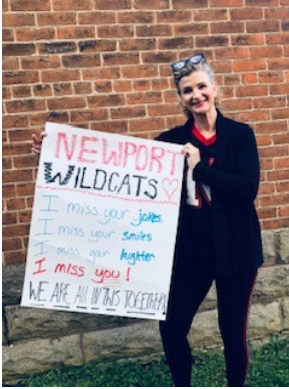 NEWPORT
WILDCATS
I miss your jokes
I miss your smiles
I miss your laughter
I miss you!
WE ARE ALL IN THIS TOGETHER!